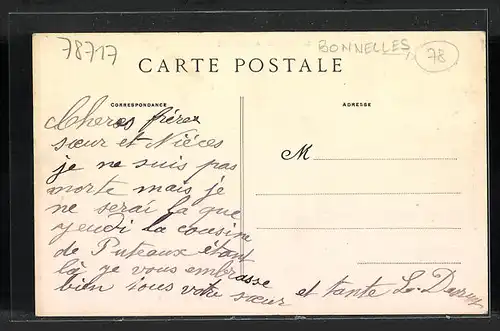 78717
BONNELLES
78
CARTE POSTALE
CORRESPONDANCE
ADRESSE
M
Cheres frères
sœur et Nièces
je ne suis pas
morte mais je
ne serai la que
yeudi la cousine
de Puteaux étant
là je vous embrasse
bien tous votre sœur et tante